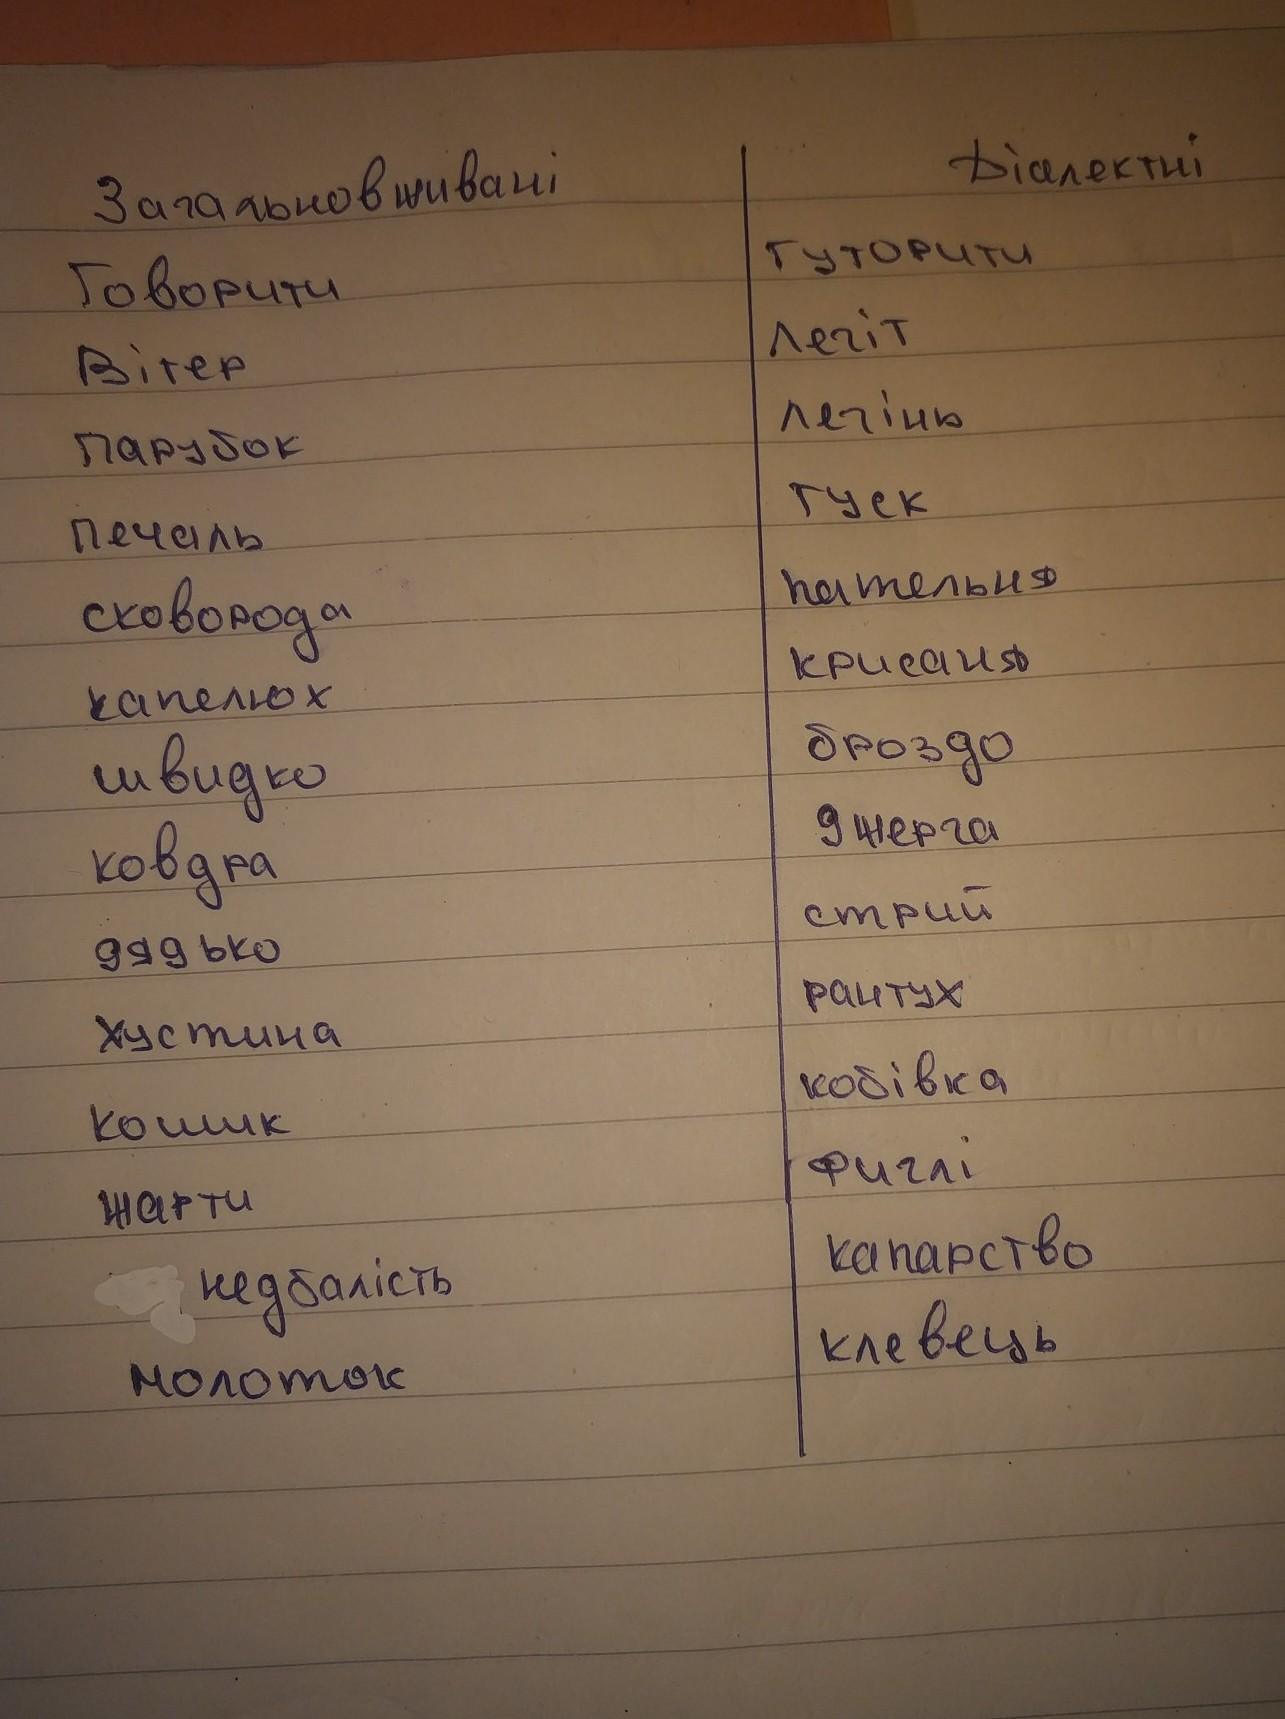 Загальновживані Діалектні
Говорити гуторити
Вітер легіт
парубок легінь
печаль туск
сковорода пательня
капелюх крисаня
швидко броздо
ковдра джерга
дядько стрий
хустина рантух
кошик кобівка
жарти фиглі
недбалість капарство
молоток клевець